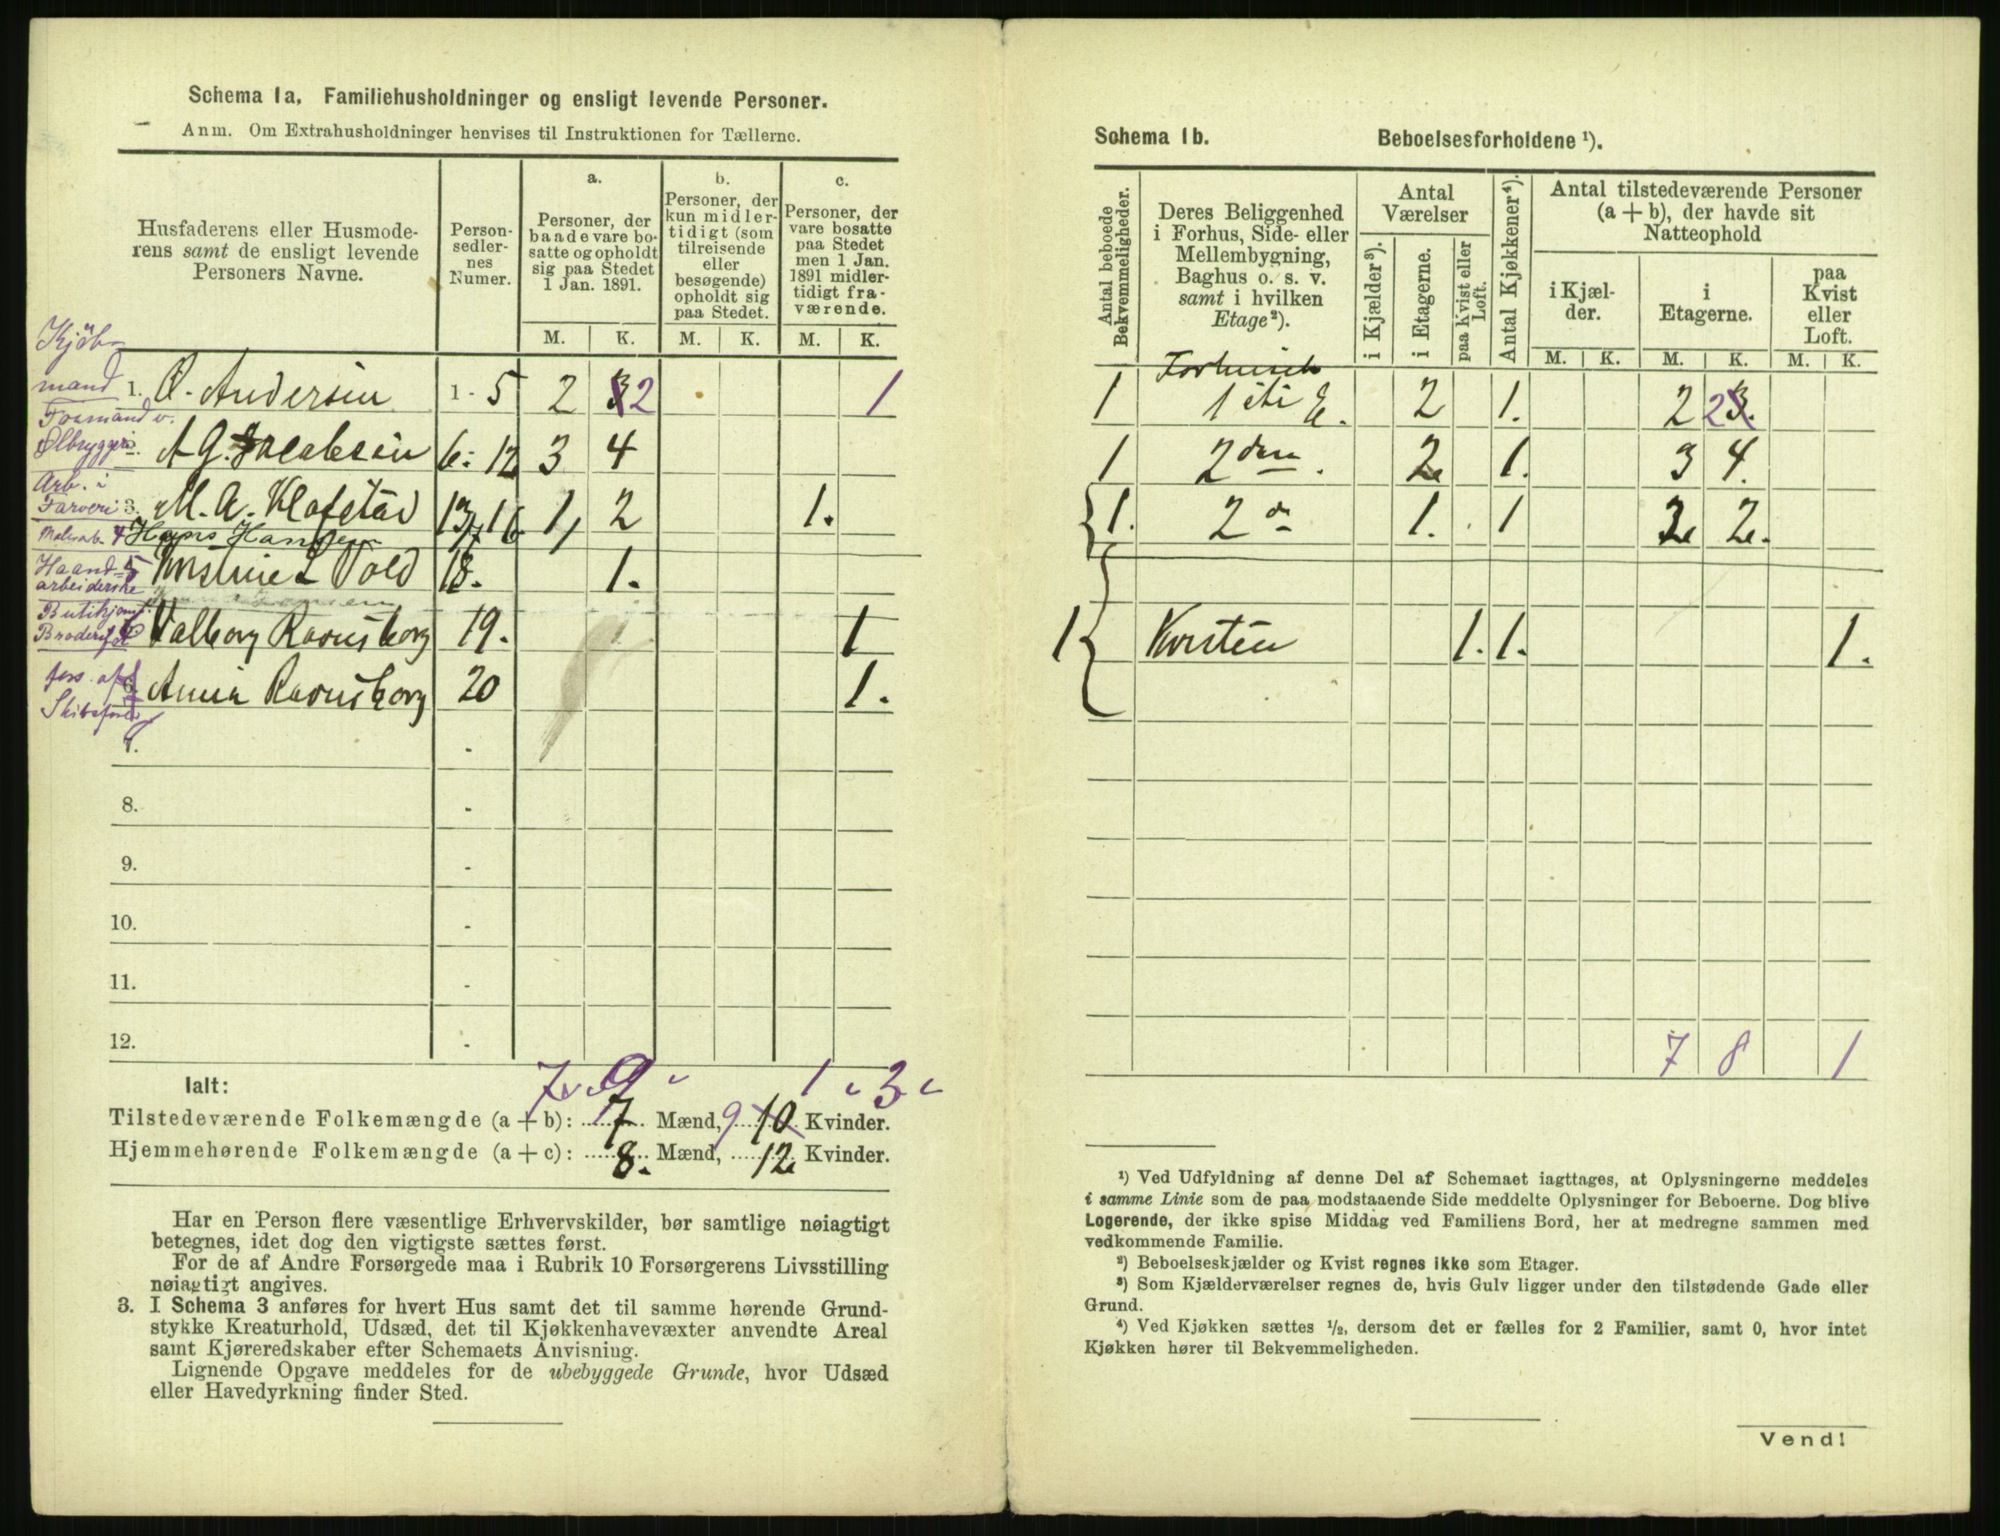 Schema 1a. Familiehusholdninger og ensligt levende Personer.
Anm. Om Extrahusholdninger henvises til Instruktionen for Tællerne.
Husfaderens eller Husmode-
rens samt de ensligt levende
Personers Navne.
Person-
sedler-
nes
Numer.
a.
Personer, der
baade vare bo-
satte og opholdt
sig paa Stedet
1 Jan. 1891.
b.
Personer, der
kun midler-
tidigt (som
tilreisende
eller
besøgende)
opholdt sig
paa Stedet.
c.
Personer, der
vare bosatte
paa Stedet
men 1 Jan.
1891 midler-
tidigt fra-
værende.
M. K. M. K. M. K.
Kjøb-
mand 1. O. Andersen 1 - 5 2 3 2 1
Formand v.
Ølbryggeri A G. Jacobsen 6 - 12 3 4
Arb. i
Farveri 3. M. A. Klofstad 13 16 1, 2 1.
4 Hans Hansen 17
Haand-
arbeiderske 5 Kristine L Vold 18. 1.
Butikjomf.
6 Valborg Ravnsborg 19. 1
fors. af
Skibsfører Anna Ravnsborg 20 1.
7. -
8. -
9. -
10. -
11. -
12. -
7 9 1 3
Ialt:
Tilstedeværende Folkemængde (a + b): 7 Mænd, 9 10 Kvinder.
Hjemmehørende Folkemængde (a + c): 8. Mænd, 12 Kvinder.
Har en Person flere væsentlige Erhvervskilder, bør samtlige nøiagtigt
betegnes, idet dog den vigtigste sættes først.
For de af Andre Forsørgede maa i Rubrik 10 Forsørgerens Livsstilling
nøiagtigt angives.
3. I Schema 3 anføres for hvert Hus samt det til samme hørende Grund-
stykke Kreaturhold, Udsæd, det til Kjøkkenhavevæxter anvendte Areal
samt Kjøreredskaber efter Schemaets Anvisning.
Lignende Opgave meddeles for de ubebyggede Grunde, hvor Udsæd
eller Havedyrkning finder Sted.
Schema 1b. Beboelsesforholdene ¹).
Antal beboede
Bekvemmeligheder.
Deres Beliggenhed
i Forhus, Side- eller
Mellembygning,
Baghus o. s. v.
samt i hvilken
Etage²).
Antal
Værelser
i Kjælder³).
i Etagerne.
paa Kvist eller
Loft.
Antal Kjøkkener⁴).
Antal tilstedeværende Personer
(a + b), der havde sit
Natteophold
i Kjæl-
der.
i
Etagerne.
paa
Kvist
eller
Loft.
M. K. M. K. M. K.
Forhuset
1 1ste E. 2 1. 2 2 3.
1 2den . 2 1. 3 4.
1. 2 do 1. 1 2 2.
1 Kvisten 1. 1. 1.
7 8 1
¹) Ved Udfyldning af denne Del af Schemaet iagttages, at Oplysningerne meddeles
i samme Linie som de paa modstaaende Side meddelte Oplysninger for Beboerne. Dog blive
Logerende, der ikke spise Middag ved Familiens Bord, her at medregne sammen med
vedkommende Familie.
²) Beboelseskjælder og Kvist regnes ikke som Etager.
³) Som Kjælderværelser regnes de, hvis Gulv ligger under den tilstødende Gade eller
Grund.
⁴) Ved Kjøkken sættes ½, dersom det er fælles for 2 Familier, samt 0, hvor intet
Kjøkken hører til Bekvemmeligheden.
Vend!